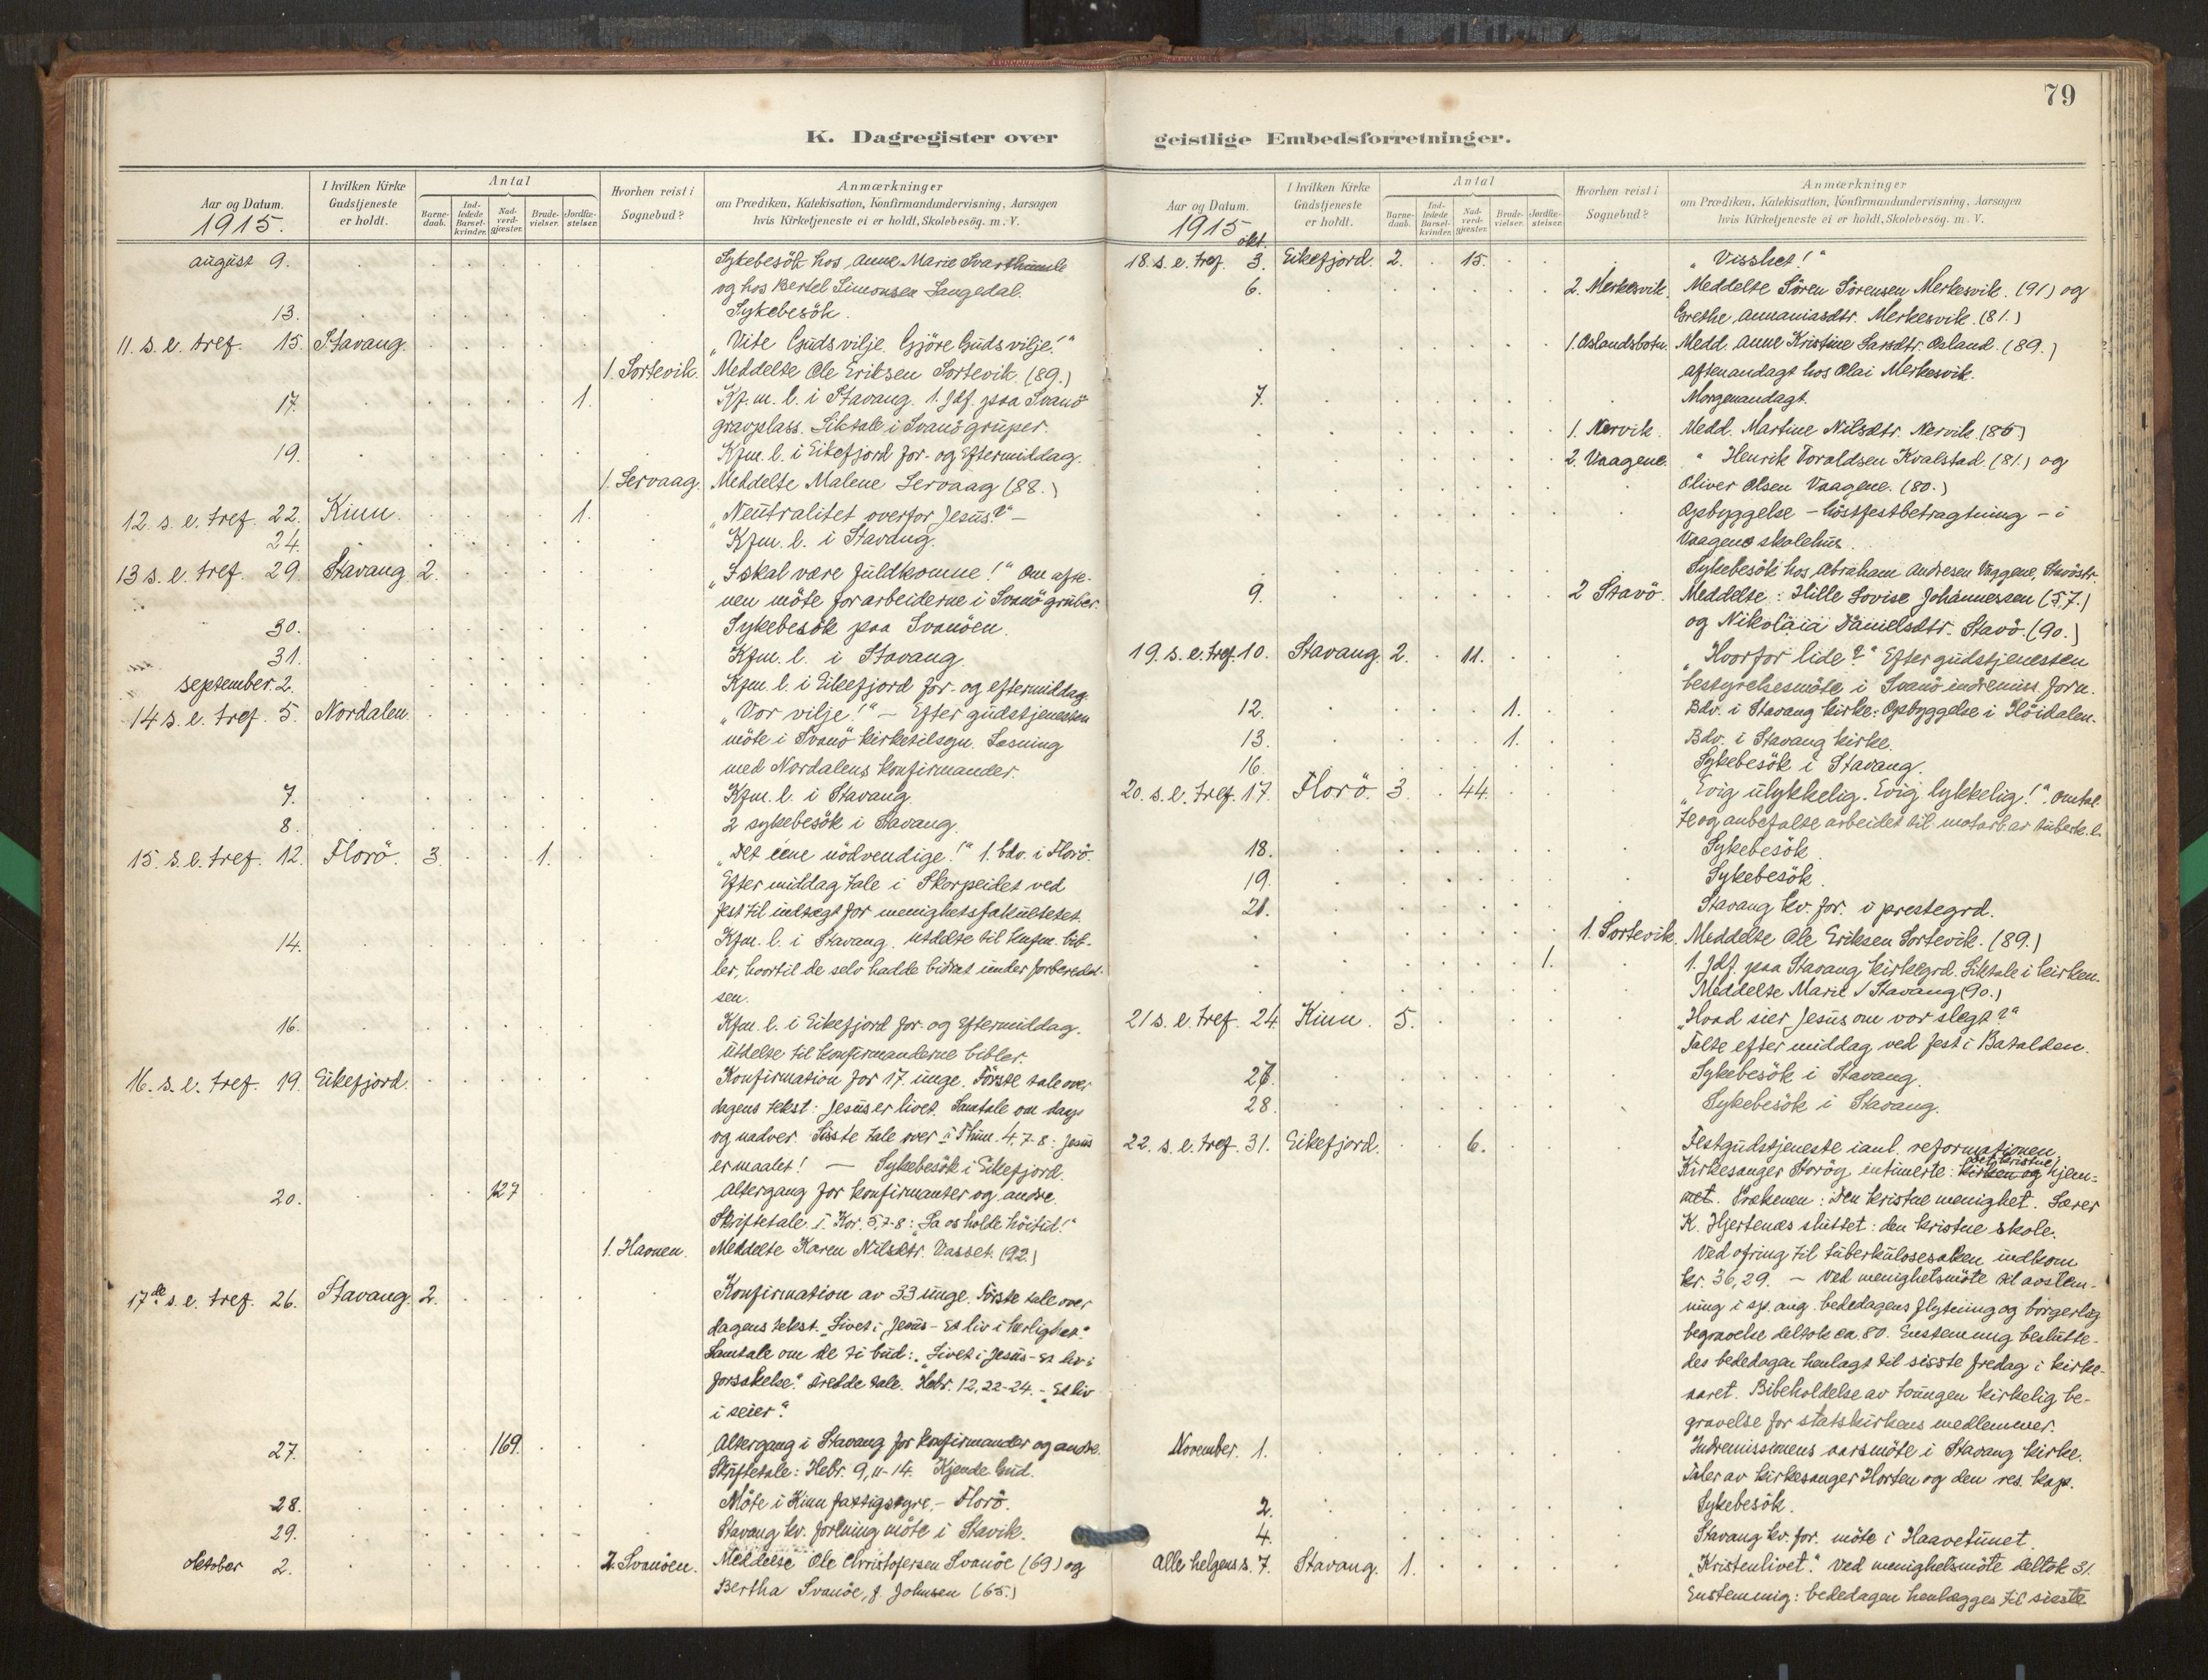 79
K. Dagregister over
geistlige Embedsforretninger.
Aar og Datum.
1915.
I hvilken Kirke Gudstjeneste er holdt.
Antal
Barne-daab.
Ind-ledede Barsel-kvinder.
Nad-verd-gjæster.
Brude-vielser.
Jordfæ-stelser.
Hvorhen reist i Sognebud?
Anmærkninger
om Prædiken, Katekisation, Konfirmandundervisning, Aarsagen
hvis Kirketjeneste ei er holdt, Skolebesøg. m. V.
august 9. Sykebesök hos Anne Marie Svarthumle
og hos Bertel Simonsen Langedal.
13. Sykebesök.
11. s. e. tref. 15. Stavang. "Vite Guds vilje. Gjöre Guds vilje!"
1. Sortevik. Meddelte Ole Eriksen Sortevik. (89.)
17. 1. Kfm. l. i Stavang. 1. Jdf. paa Svanö
gravplass. Liktale i Svanö gruper.
19. Kfm. l. i Eikefjord for- og Eftermiddag.
1. Servaag. Meddelte Malene Servaag (88.)
12. s. e. tref. 22. Kinn. 1. "Neutralitet overfor Jesus?" —
24. Kfm. l. i Stavang.
13 s. e. tref. 29. Stavang 2. "I skal være fuldkomne!" Om afte-
nen möte for arbeiderne i Svanö gruber.
30. Sykebesök paa Svanöen.
31. Kfm. l. i Stavang.
september 2. Kfm. l. i Eikefjord for- og eftermiddag.
14 s. e. tref. 5. Nordalen. "Vor vilje!" — Efter gudstjenesten
möte i Svanö kirketilsyn. Læsning
med Nordalens konfirmander.
7. Kfm. l. i Stavang.
8. 2 sykebesök i Stavang.
15. s. e. tref. 12. Florö. 3. 1. "Det ene nödvendige!" 1. bdv. i Florö.
Efter middag tale i Skorpeidet ved
fest til indtægt for menighetsfakultetet.
14. Kfm. l. i Stavang. Utdelte til konfm. bib-
ler, hvortil de selv hadde bidrat under forberedel-
sen.
16. Kfm. l. i Eikefjord for- og Eftermiddag.
Utdelte til konfirmanderne bibler.
16. s. e. tref. 19. Eikefjord. Konfirmation for 17 unge. Förste tale over
dagens tekst: Jesus er livet. Samtale om daap
og nadver. Sisste tale over II Thim. 4, 7-8: Jesus
er maalet! — Sykebesök i Eikefjord.
20. 127 Altergang for konfirmanter og andre
Skriftetale I. Kor. 5, 7-8: "La os holde höitid!"
1. Havnen. Meddelte Karen Nilsdtr. Vasset. (92.)
17de s. e. tref. 26. Stavang. 2. Konfirmation av 33 unge. Förste tale over
dagens tekst. "Livet i Jesus - et liv i herlighet."
Samtale om de ti bud: "Livet i Jesus - et liv i
forsakelse." Tredde tale. Hebr. 12, 22-24. - "Et liv
i seier."
27. 169. Altergang i Stavang for konfirmander og andre.
Skriftetale: Hebr. 9, 11-14. Kjende Gud.
28. Möte i Kinn fattigstyre. - Florö.
29. Stavang kv. forening möte i Stavik.
oktober 2. 2. Svanöen. Meddelte Ole Christofersen Svanöe (69) og
Bertha Svanöe, f. Johnsen (65.)
Aar og Datum.
1915 okt.
I hvilken Kirke Gudstjeneste er holdt.
Antal
Barne-daab.
Ind-ledede Barsel-kvinder.
Nad-verd-gjæster.
Brude-vielser.
Jordfæ-stelser.
Hvorhen reist i Sognebud?
Anmærkninger
om Prædiken, Katekisation, Konfirmandundervisning, Aarsagen
hvis Kirketjeneste ei er holdt, Skolebesøg. m. V.
18. s. e. tref. 3. Eikefjord. 2. 15. "Visshet!"
6. 2. Merkesvik. Meddelte Sören Sörensen Merkesvik. (91) og
Grethe Annaniasdtr. Merkesvik. (81.)
1. Oslandsbotn. Medd. Anne Kristine Larsdtr. Osland. (89.)
aftenandagt hos Olai Merkesvik.
7. Morgenandagt.
1. Nervik. Medd. Martine Nilsdtr. Nervik. (85)
2. Vaagene. " Henrik Toraldsen Kvalstad. (81.) og
Oliver Olsen Vaagene. (80.)
Opbyggelse - höstfestbetragtning - i
Vaagene skolehus.
Sykebesök hos Abraham Andresen Vaagene,
9. 2 Stavö. Meddelte: Hille Lovise Johannessen (57.)
og Nikolaia Danielsdtr. Stavö. (90.)
19. s. e. tref. 10. Stavang. 2. 11. "Hvorfor lide?" Efter gudstjenesten
bestyrelsesmöte i Svanö indremiss. foren.
12. 1. Bdv. i Stavang kirke. Opbyggelse i Höidalen.
13. 1. Bdv. i Stavang kirke.
16. Sykebesök i Stavang.
20. s. e. tref. 17. Florö. 3. 44. "Evig ulykkelig. Evig lykkelig!" Omtal-
te og anbefalte arbeidet til motarb. av tuberk. l.
18. Sykebesök.
19. Sykebesök.
21. Stavang kv. for. i prestegrd.
1. Sortevik. Meddelte Ole Eriksen Sortevik. (89.)
1. 1. jdf. paa Stavang kirkegrd. Liktale i kirken.
Meddelte Marie Stavang (90.)
21 s. e. tref. 24 Kinn. 5. "Hvad sier Jesus om vor slegt?"
Talte efter middag ved fest i Batalden.
26. Sykebesök i Stavang.
28. Sykebesök i Stavang.
22. s. e. tref. 31. Eikefjord. 6. Festgudstjeneste i anl. reformationen.
Kirkesanger Storög intimerte: kirken og det kristne hjem-
met. Prækenen: Den kristne menighet. Lærer
K. Hjertenæs sluttet: den kristne skole.
Ved ofring til tuberkulosesaken indkom
kr. 36,29. — Ved menighetsmöte til avstem-
ning i sp. ang. bededagens flytning og borgerlig
begravelse deltok ca. 80. Enstemmig beslutte-
des bededagen henlagt til sisste fredag i kirke-
aaret. Bibeholdelse av tvungen kirkelig be-
gravelse for statskirkens medlemmer.
November. 1. Indremissionens aarsmöte i Stavang kirke.
Taler av kirkesanger Horten og den res. kap.
2. Sykebesök.
4. Stavang kv. for. möte i Haavetunet.
Alle helgens s. 7. Stavang. 1. "Kristenlivet." Ved menighetsmöte deltok 31.
Enstemmig: bededagen henlægges til sisste